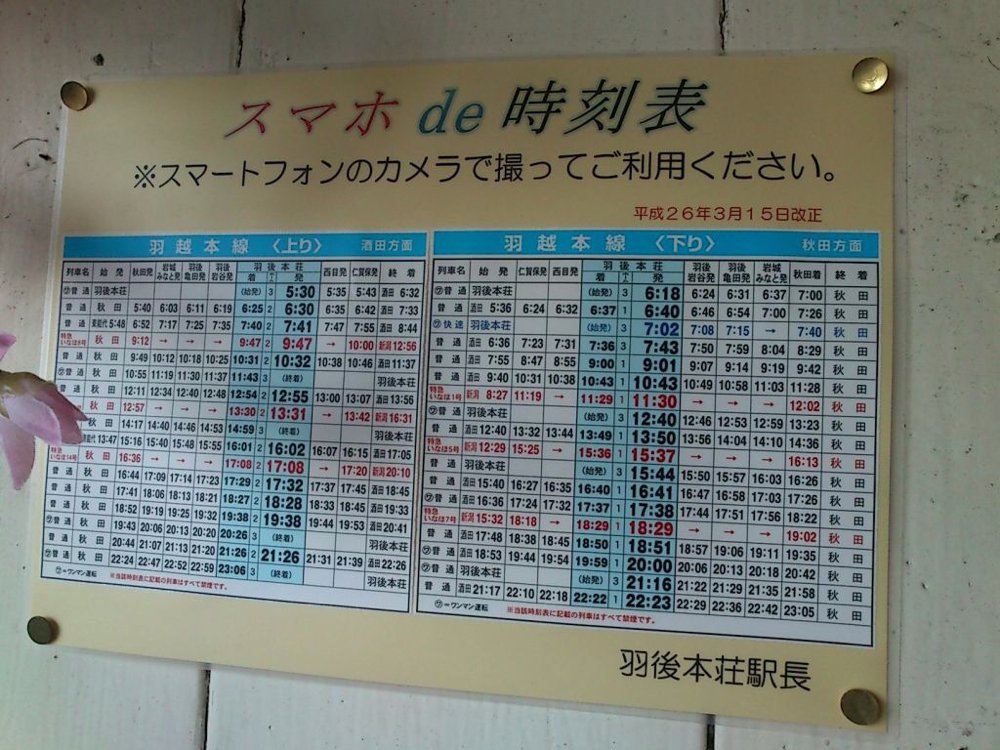 スマホ de 時刻表
※スマートフォンのカメラで撮ってご利用ください。
平成26年3月15日改正
羽越本線〈上り〉 酒田方面
列車名 始発 秋田発 岩城みなと発 羽後亀田発 羽後岩谷発 羽後本荘 着 発 西目発 仁賀保発 終着
㋻普通 羽後本荘 (始発) 3 5:30 5:35 5:43 酒田 6:32
普通 秋田 5:40 6:03 6:11 6:19 6:25 2 6:30 6:35 6:42 酒田 7:33
普通 5:48 6:52 7:17 7:25 7:35 7:40 2 7:41 7:47 7:55 酒田 8:44
特急 秋田 9:12 → → → 9:47 2 9:47 → 10:00 新潟 12:56
普通 秋田 9:49 10:12 10:18 10:25 10:31 2 10:32 10:38 10:46 酒田 11:37
㋻普通 秋田 10:55 11:19 11:30 11:37 11:43 3 (終着) 羽後本荘
普通 秋田 12:11 12:34 12:40 12:48 12:54 2 12:55 13:00 13:07 酒田 13:56
秋田 12:57 → → → 13:30 2 13:31 → 13:42 新潟 16:31
秋田 14:17 14:40 14:46 14:53 14:59 3 (終着) 羽後本荘
13:47 15:16 15:40 15:48 15:55 16:01 2 16:02 16:07 16:15 酒田 17:05
特急 秋田 16:36 → → → 17:08 2 17:08 → 17:20 新潟 20:10
普通 秋田 16:44 17:09 17:14 17:23 17:29 2 17:32 17:37 17:45 酒田 18:35
普通 秋田 17:41 18:06 18:13 18:21 18:27 2 18:28 18:33 18:45 酒田 19:33
普通 秋田 18:52 19:19 19:25 19:32 19:38 2 19:38 19:44 19:53 酒田 20:41
㋻普通 秋田 19:43 20:06 20:13 20:20 20:26 3 (終着) 羽後本荘
普通 秋田 20:44 21:07 21:13 21:20 21:26 2 21:26 21:31 21:39 酒田 22:26
㋻普通 秋田 22:24 22:47 22:52 22:59 23:06 3 (終着) 羽後本荘
㋻=ワンマン運転 ※当該時刻表に記載の列車はすべて禁煙です。
羽越本線〈下り〉 秋田方面
列車名 始発 仁賀保発 西目発 羽後本荘 着 発 羽後岩谷発 羽後亀田発 岩城みなと発 秋田着 終着
㋻普通 羽後本荘 (始発) 3 6:18 6:24 6:31 6:37 7:00 秋田
普通 酒田 5:36 6:24 6:32 6:37 1 6:40 6:46 6:54 7:00 7:26 秋田
㋻快速 羽後本荘 (始発) 3 7:02 7:08 7:15 → 7:40 秋田
普通 酒田 6:36 7:23 7:31 7:36 3 7:43 7:50 7:59 8:04 8:29 秋田
普通 酒田 7:55 8:47 8:55 9:00 1 9:01 9:07 9:14 9:19 9:42 秋田
普通 酒田 9:40 10:31 10:38 10:43 1 10:43 10:49 10:58 11:03 11:28 秋田
特急いなほ1号 新潟 8:27 11:19 → 11:29 1 11:30 → → → 12:02 秋田
㋻普通 羽後本荘 (始発) 3 12:40 12:46 12:53 12:59 13:23 秋田
普通 酒田 12:40 13:32 13:44 13:49 1 13:50 13:56 14:04 14:10 14:36 秋田
特急いなほ5号 新潟 12:29 15:25 → 15:36 1 15:37 → → → 16:13 秋田
普通 羽後本荘 (始発) 3 15:44 15:50 15:57 16:03 16:26 秋田
普通 酒田 15:40 16:27 16:35 16:40 1 16:41 16:47 16:58 17:03 17:26 秋田
㋻普通 酒田 16:36 17:24 17:32 17:37 1 17:38 17:44 17:51 17:56 18:22 秋田
特急いなほ7号 新潟 15:32 18:18 → 18:29 1 18:29 → → → 19:02 秋田
普通 酒田 17:48 18:38 18:45 18:50 1 18:51 18:57 19:06 19:11 19:35 秋田
㋻普通 酒田 18:53 19:44 19:54 19:59 1 20:00 20:06 20:13 20:18 20:42 秋田
㋻普通 羽後本荘 (始発) 3 21:16 21:22 21:29 21:35 21:58 秋田
普通 酒田 21:17 22:10 22:18 22:22 1 22:23 22:29 22:36 22:42 23:05 秋田
㋻=ワンマン運転 ※当該時刻表に記載の列車はすべて禁煙です。
羽後本荘駅長